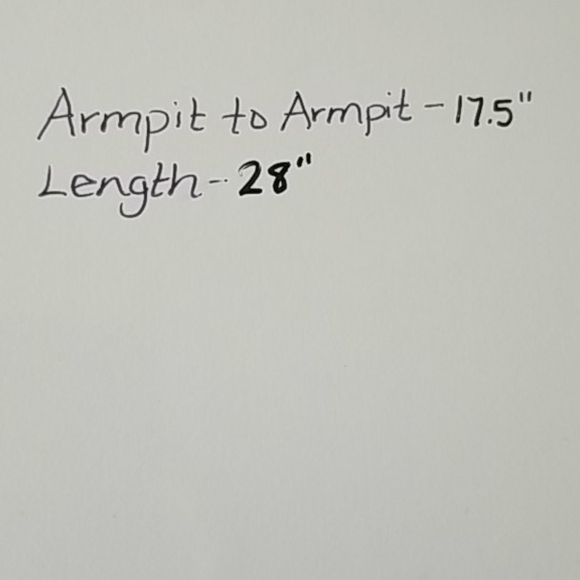 Armpit to Armpit - 17.5"
Length - 28"